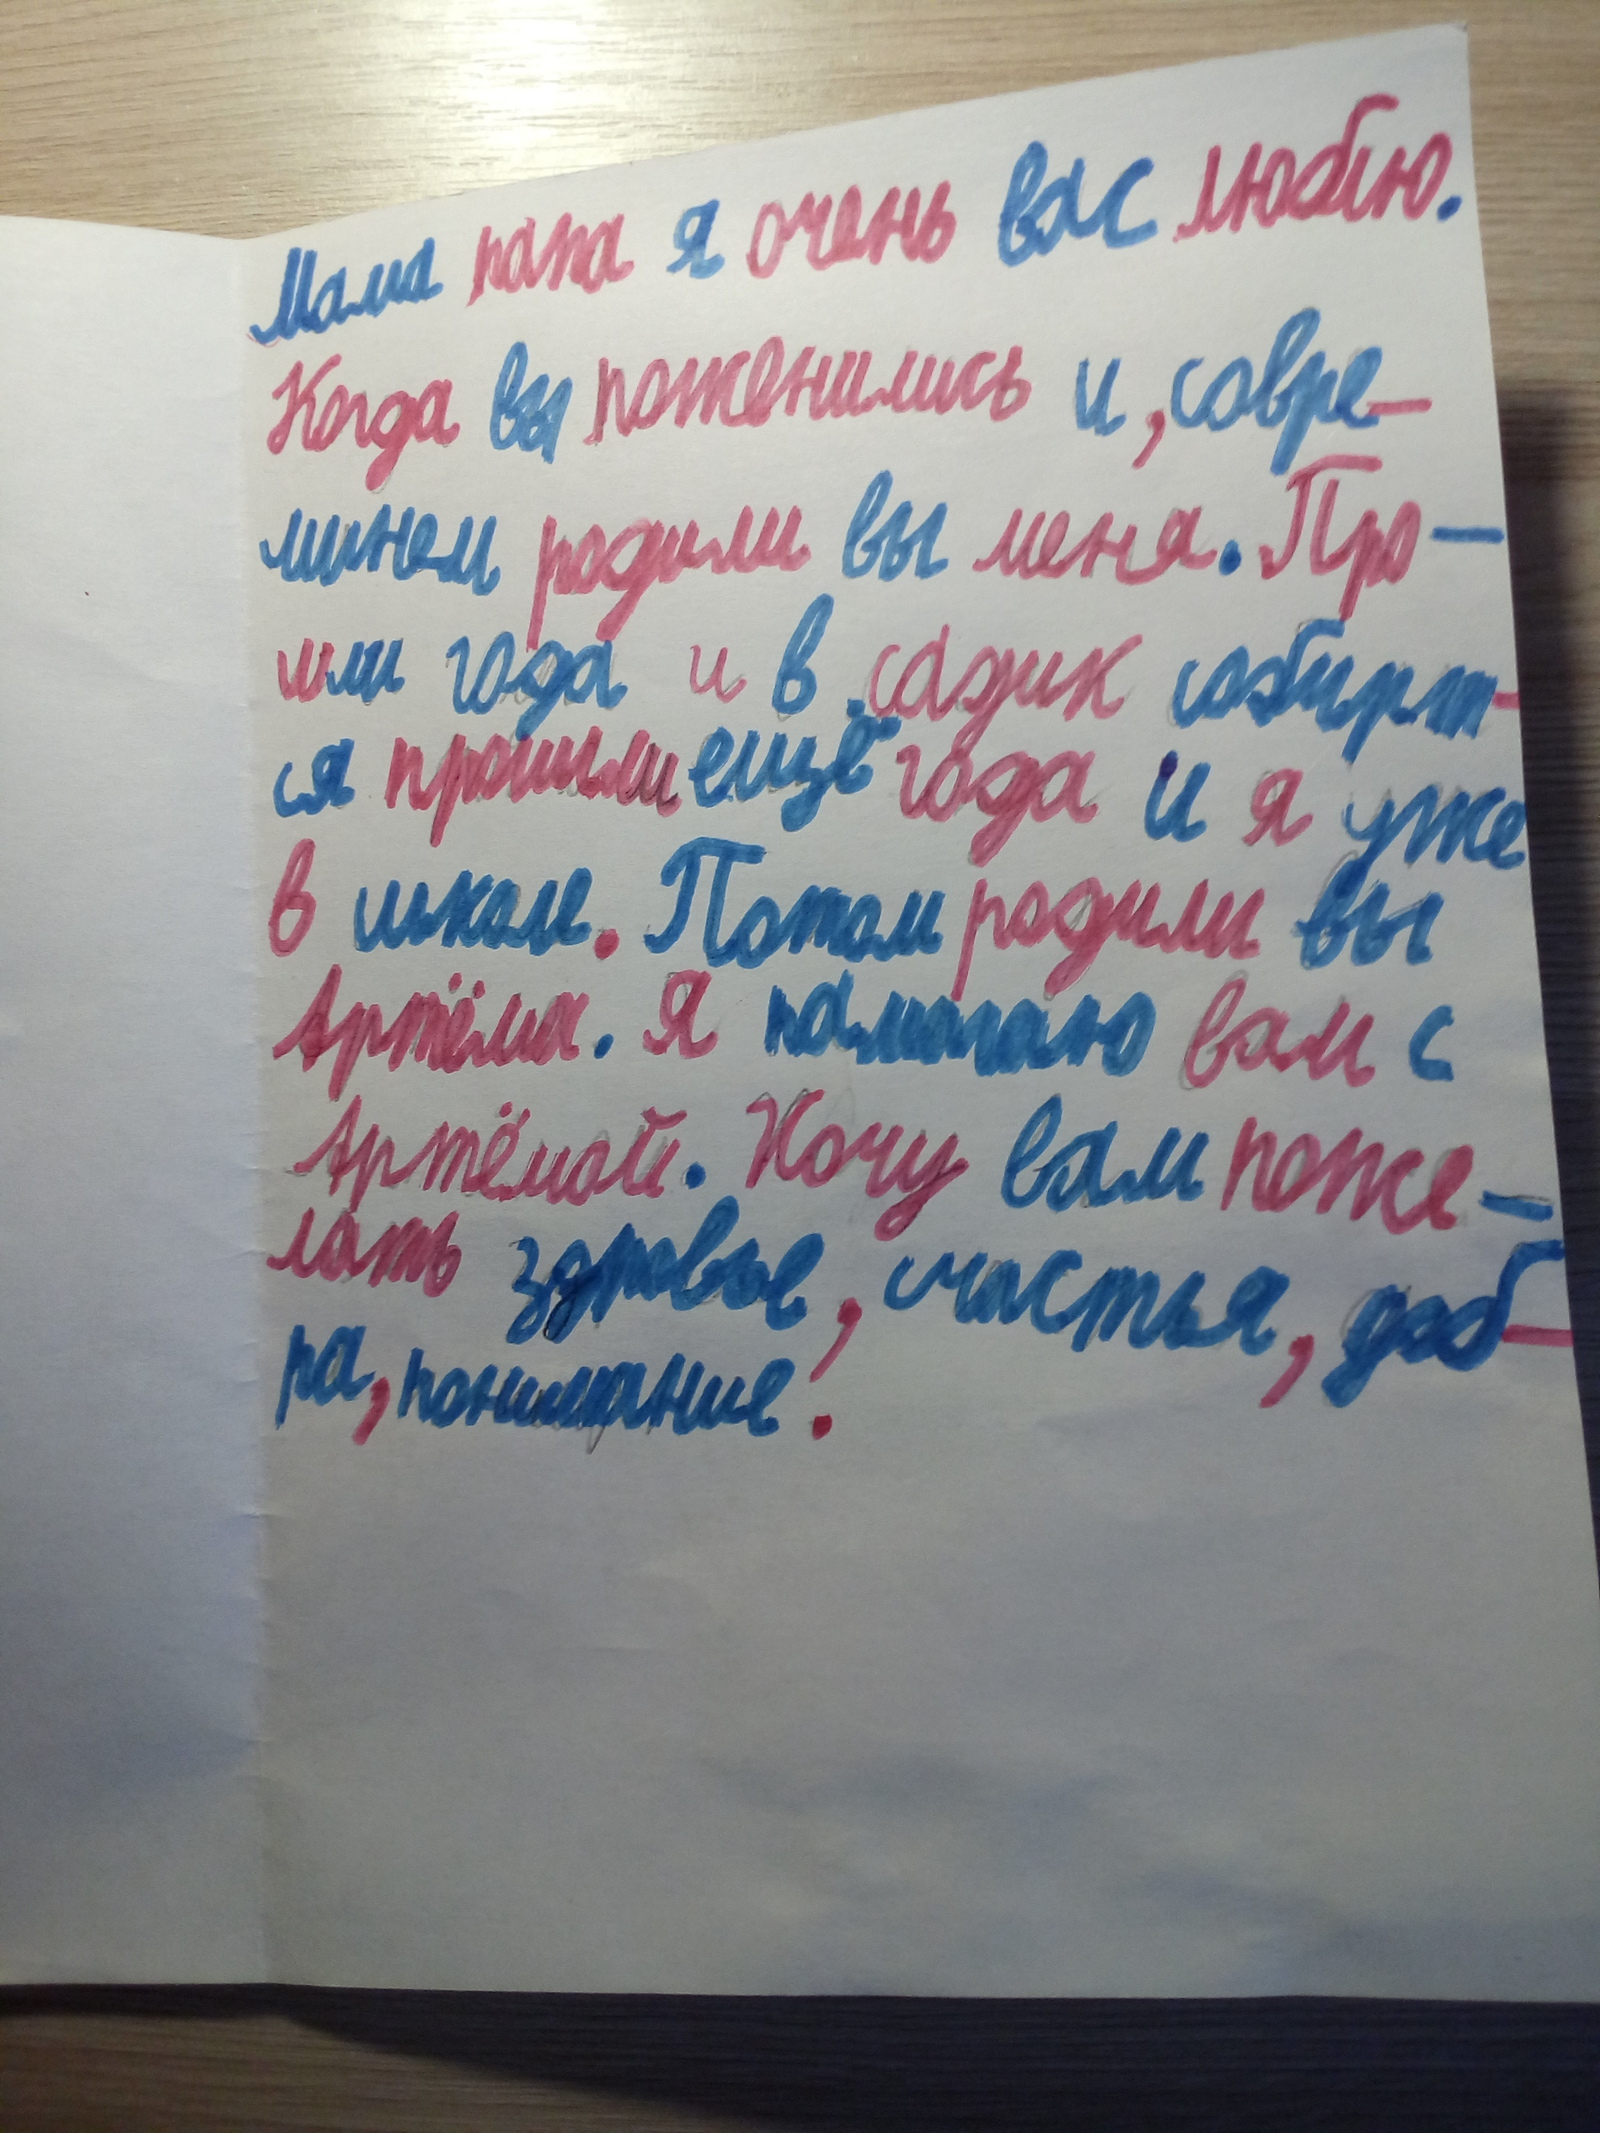 Мама папа я очень вас люблю.
Когда вы поженились и, совре-
минем родили вы меня. Про-
шли года и в садик собират-
ся прошли ещё года и я уже
в школе. Потом родили вы
Артёма. Я памагаю вам с
Артёмой. Хочу вам поже-
лать здровье, счастья, доб-
ра, понимание!